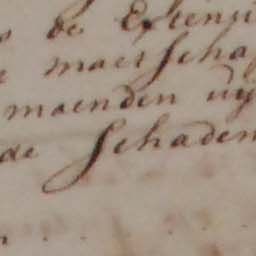 de Extensi
maetscha
maenden uy
de schaden